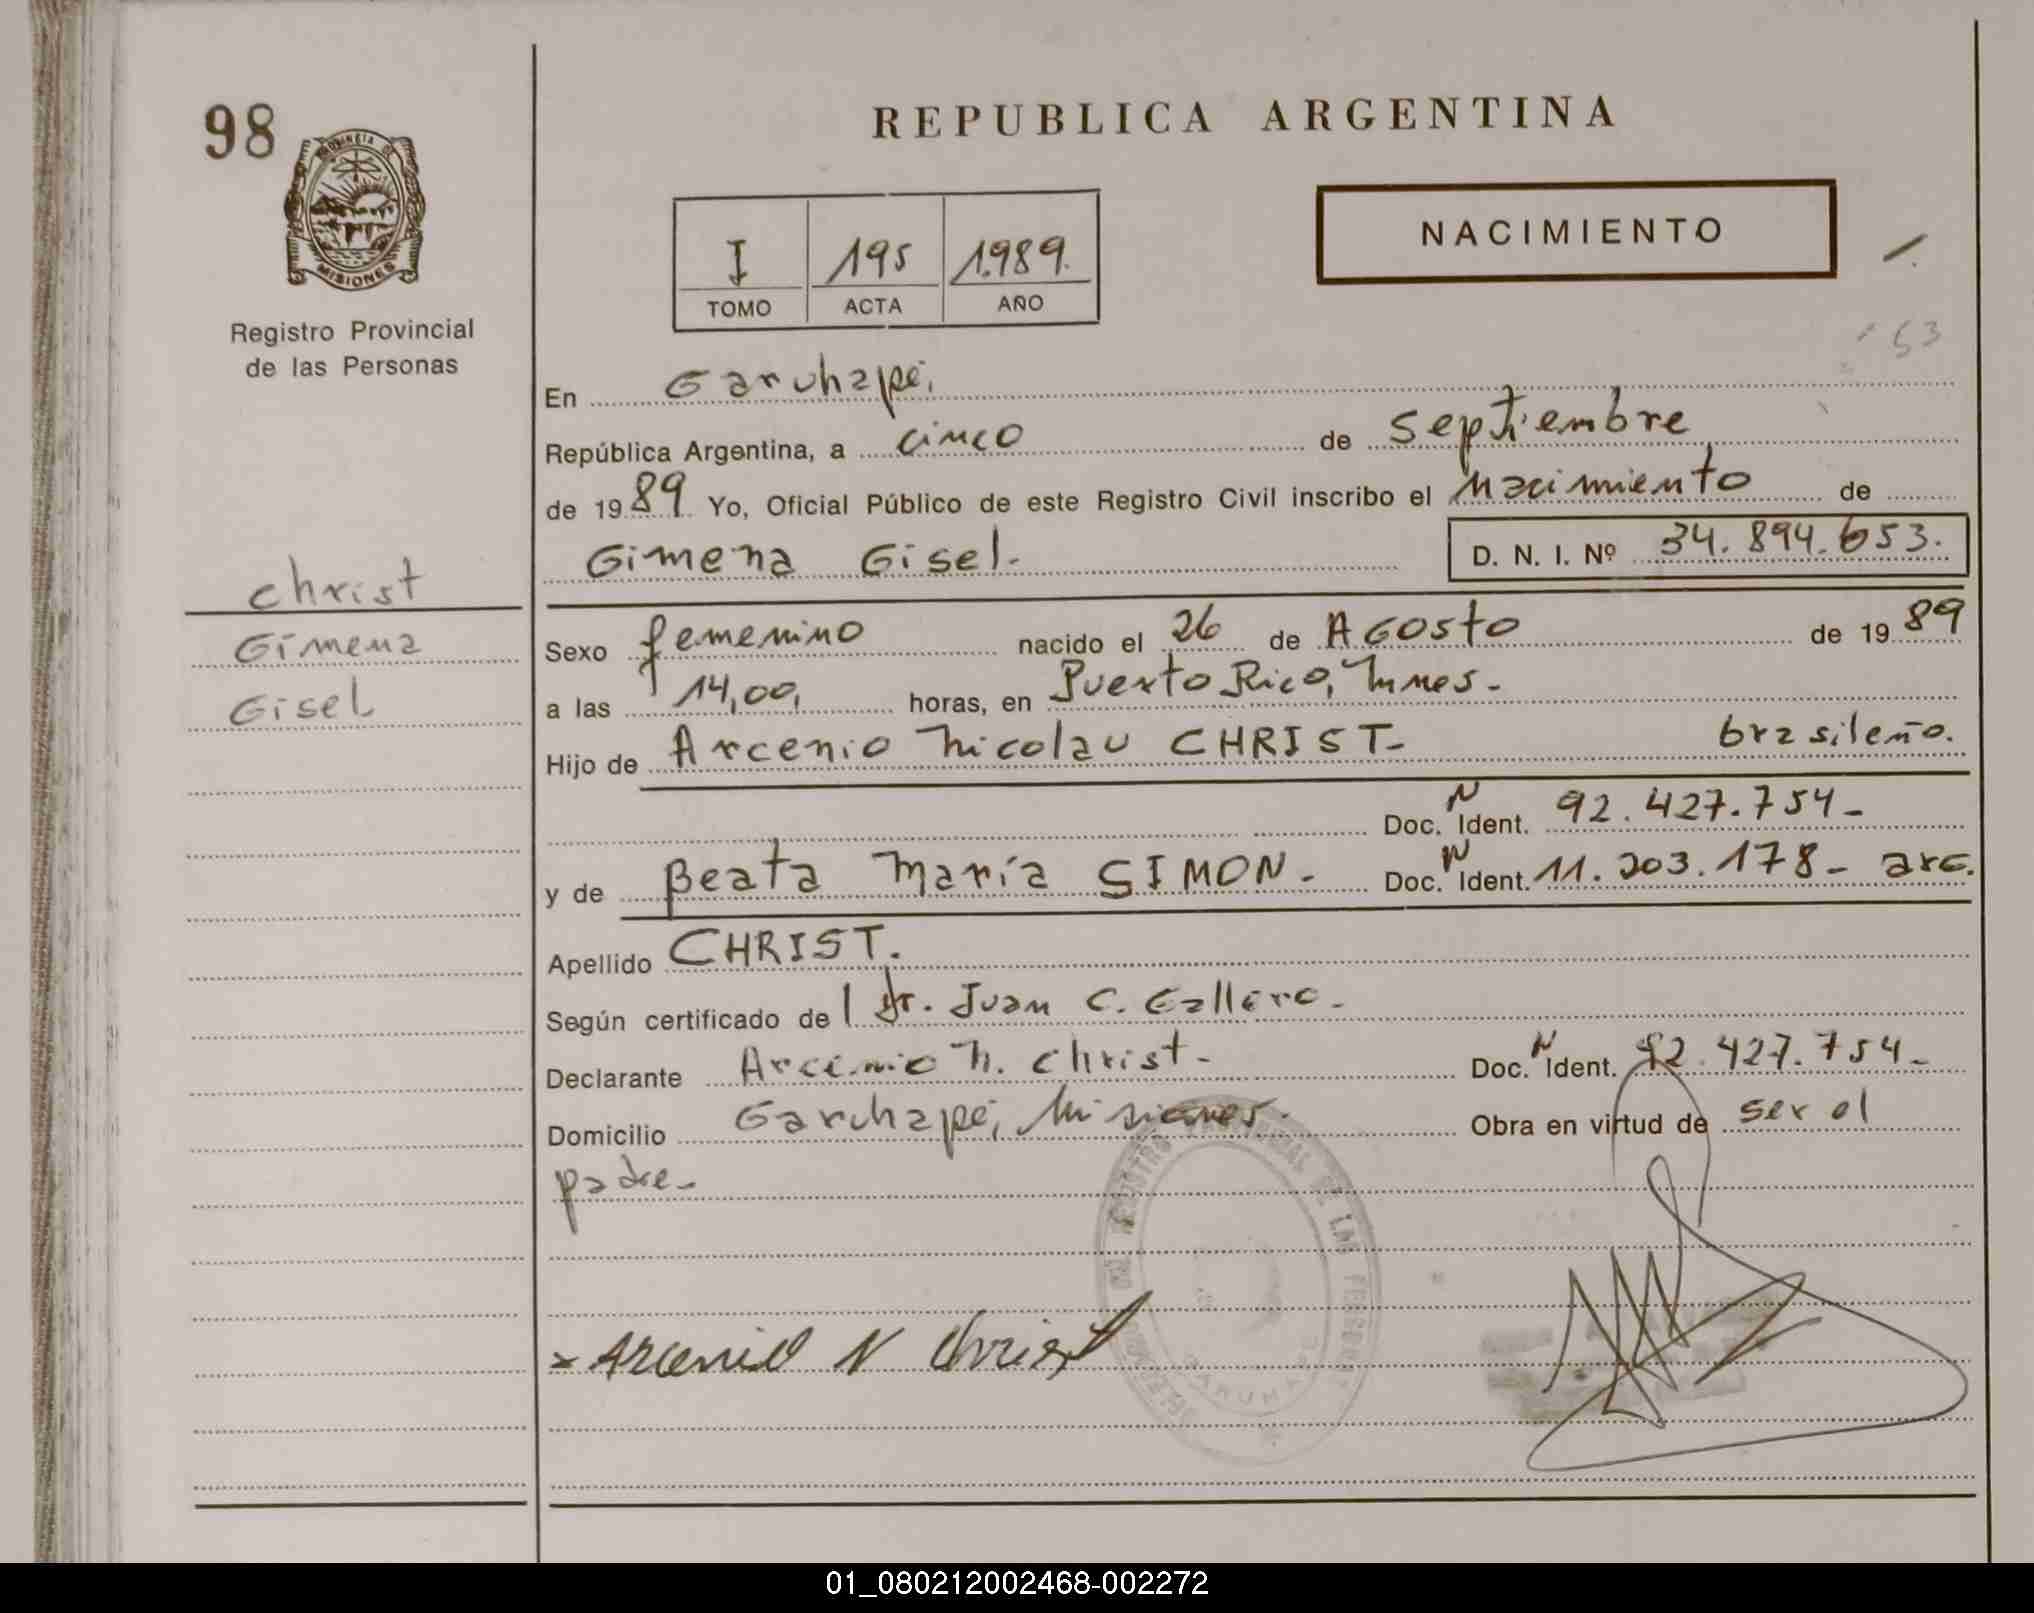 98
PROVINCIA DE
MISIONES
Registro Provincial
de las Personas
REPUBLICA ARGENTINA
I 195 1.989.
TOMO ACTA AÑO
NACIMIENTO
53
En Garuhapé,
República Argentina, a cinco de septiembre
de 1989 Yo, Oficial Público de este Registro Civil inscribo el Nacimiento de
Gimena Gisel. D. N. I. Nº 34.894.653.
Christ
Gimena
Gisel
Sexo femenino nacido el 26 de AGosto de 1989
a las 14,00, horas, en Puerto Rico, Mnes.
Hijo de Arcenio Nicolau CHRIST- brasileño.
Doc. N Ident. 92.427.754-
y de Beata María SIMON. Doc. N Ident. 11.203.178- arg.
Apellido CHRIST.
Según certificado de l dr. Juan C. Gallero.
Declarante Arcenio N. Christ- Doc. N Ident. 92.427.754-
Domicilio Garuhapé, Misiones. Obra en virtud de ser el
padre-
REGISTRO PROVINCIAL DE LAS PERSONAS
GARUHAPE
x Arcenio N Christ
01_080212002468-002272